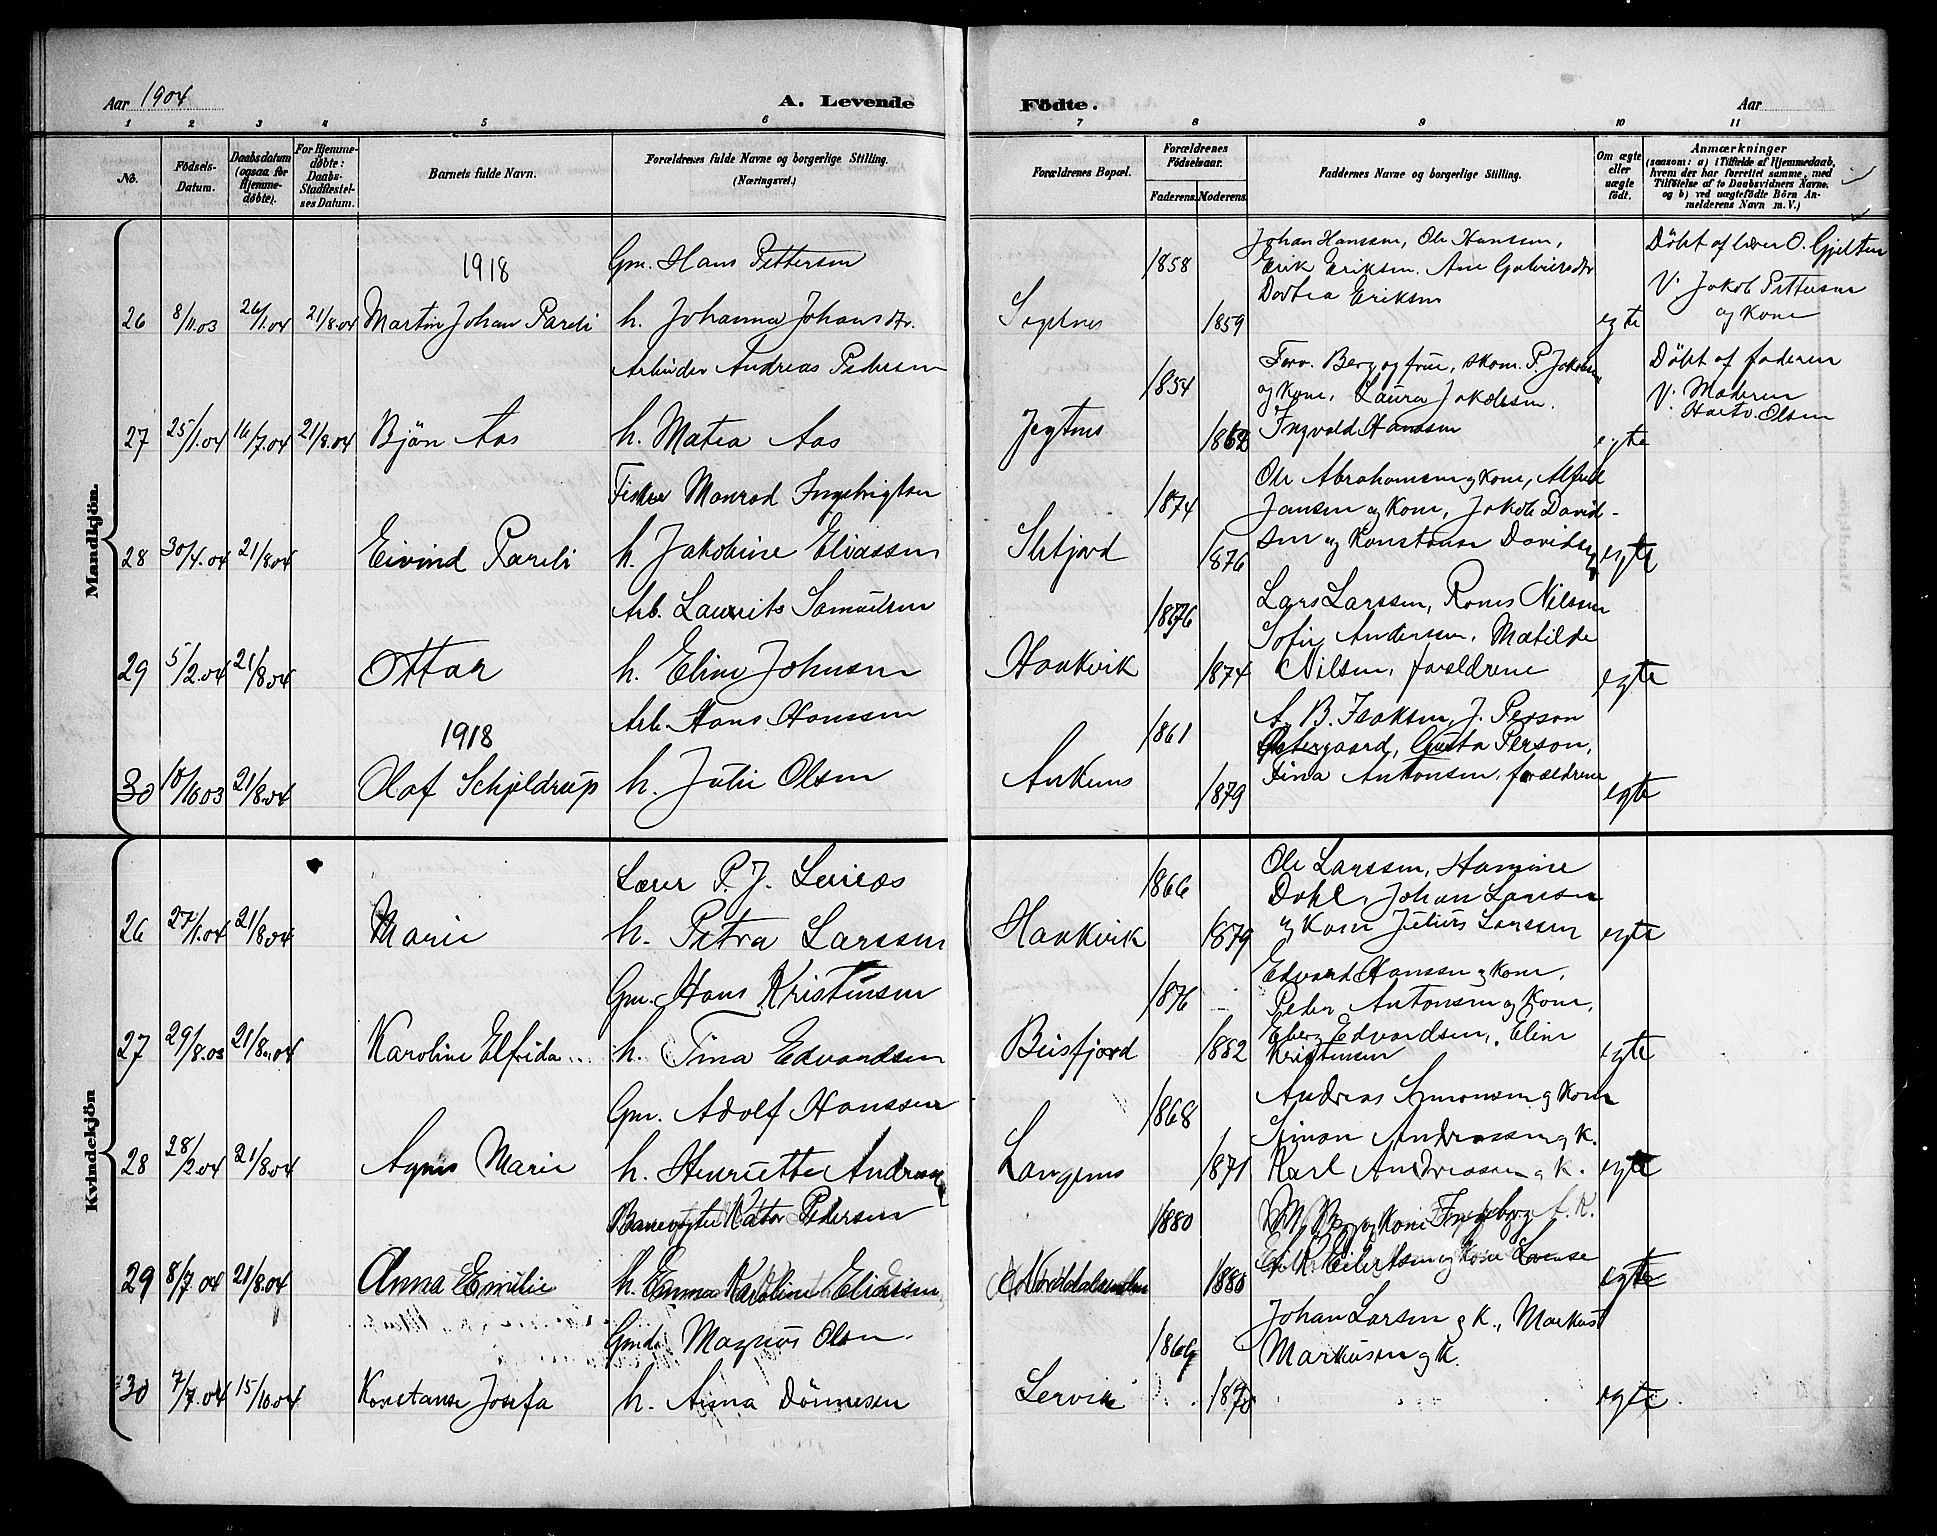 Aar 1904
A. Levende
Födte.
Aar
1 2 3 4 5 6 7 8 9 10 11
No.
Födsels-
Datum.
Daabsdatum
(ogsaa for
Hjemme-
döbte).
For Hjemme-
döbte:
Daabs-
Stadfæstel-
ses Datum.
Barnets fulde Navn.
Forældrenes fulde Navne og borgerlige Stilling.
(Næringsvei.)
Forældrenes Bopæl.
Forældrenes
Födselsaar.
Faderens. Moderens.
Faddernes Navne og borgerlige Stilling.
Om ægte
eller
uægte
födt.
Anmærkninger
(saasom: a) i Tilfælde af Hjemmedaab,
hvem der har forrettet samme, med
Tilföielse af to Daabsvidners Navne.
og b) ved uægtefödte Börn An-
melderens Navn m. V.)
Mandkjön.
1918
Gm. Hans Pettersen
1858
Johan Hanssen, Ole Hanssen,
Erik Eriksen, Ane
Dortea Eriksen
Döbt af lærer O. Gjelten
V. Jakob Pettersen
og Kone
26 8/11.03 26/1.04 21/8.04 Martin Johan Pareli h. Johanna Johansdtr. 1859 egte
Arbeider Andreas Pedersen
1854
Forv. Berg og frue, skom. P. Jakobsen
og Kone, Laura Jakobsen.
Ingvald Hanssen
Döbt af faderen
V. Moderen
Olsen
27 25/1.04 16/7.04 21/8.04 Bjön Aas h. Matea Aas 1862 egte
Fisker Monrad Ingebrigtsen
1874
Ole Abrahamsen og Kone, Alfred
Jansen og Kone, Jakob David-
sen og Konstanse Davidsen
28 30/4.04 21/8.04 Eivind Pareli h. Jakobine Eliassen 1876 egte
Arb. Laurits Samuelsen
1876
Lars Larssen, Nilssen
Sofie Andersen, Matilde
Nilsen, forældrene
29 5/2.04 21/8.04 Ottar h. Eline Johnsen Haakvik 1874 egte
1918
Arb. Hans Hanssen
1861
A. B. Isaksen, J. Person
Östergaard, Gusta Person,
Tina Antonsen, forældrene
30 10/10 03 21/8.04 Olaf Schjeldrup h. Julie Olsen Ankenes 1879 egte
Kvindekjön
Lærer P. J. Leiraas
1866
Ole Larssen, Hansine
Dahl, Johan Larsen
og Kone Julius Larssen
26 27/1.04 21/8.04 Marie h. Petra Larssen Haakvik 1879 egte
Gm. Hans Kristensen
1876
Edvard Hanssen og Kone,
Peder Antonsen og Kone,
Eberg Edvardsen, Eline
Kristensen
27 29/8.03 21/8.04 Karoline Elfrida h. Tina Edvardsen Beisfjord 1882 egte
Gm. Adolf Hanssen
1868
Andreas Simonsen og Kone
Simon Andreassen og K.
Karl Andreassen og K.
28 28/2.04 21/8.04 Agnes Marie h. Henriette Andreassen 1871 egte
Banevogter Pedersen
1880
29 8/7 04 21/8.04 Anna Emilie h. Emma Karoline Eliassen 1880 egte
Gmd. Magnus Olsen
Johan Larsen og K., Markus
Markusen og K.
30 7/7.04 15/10.04 Konstanse Josefa h. Anna Dönnesen Lervik egte